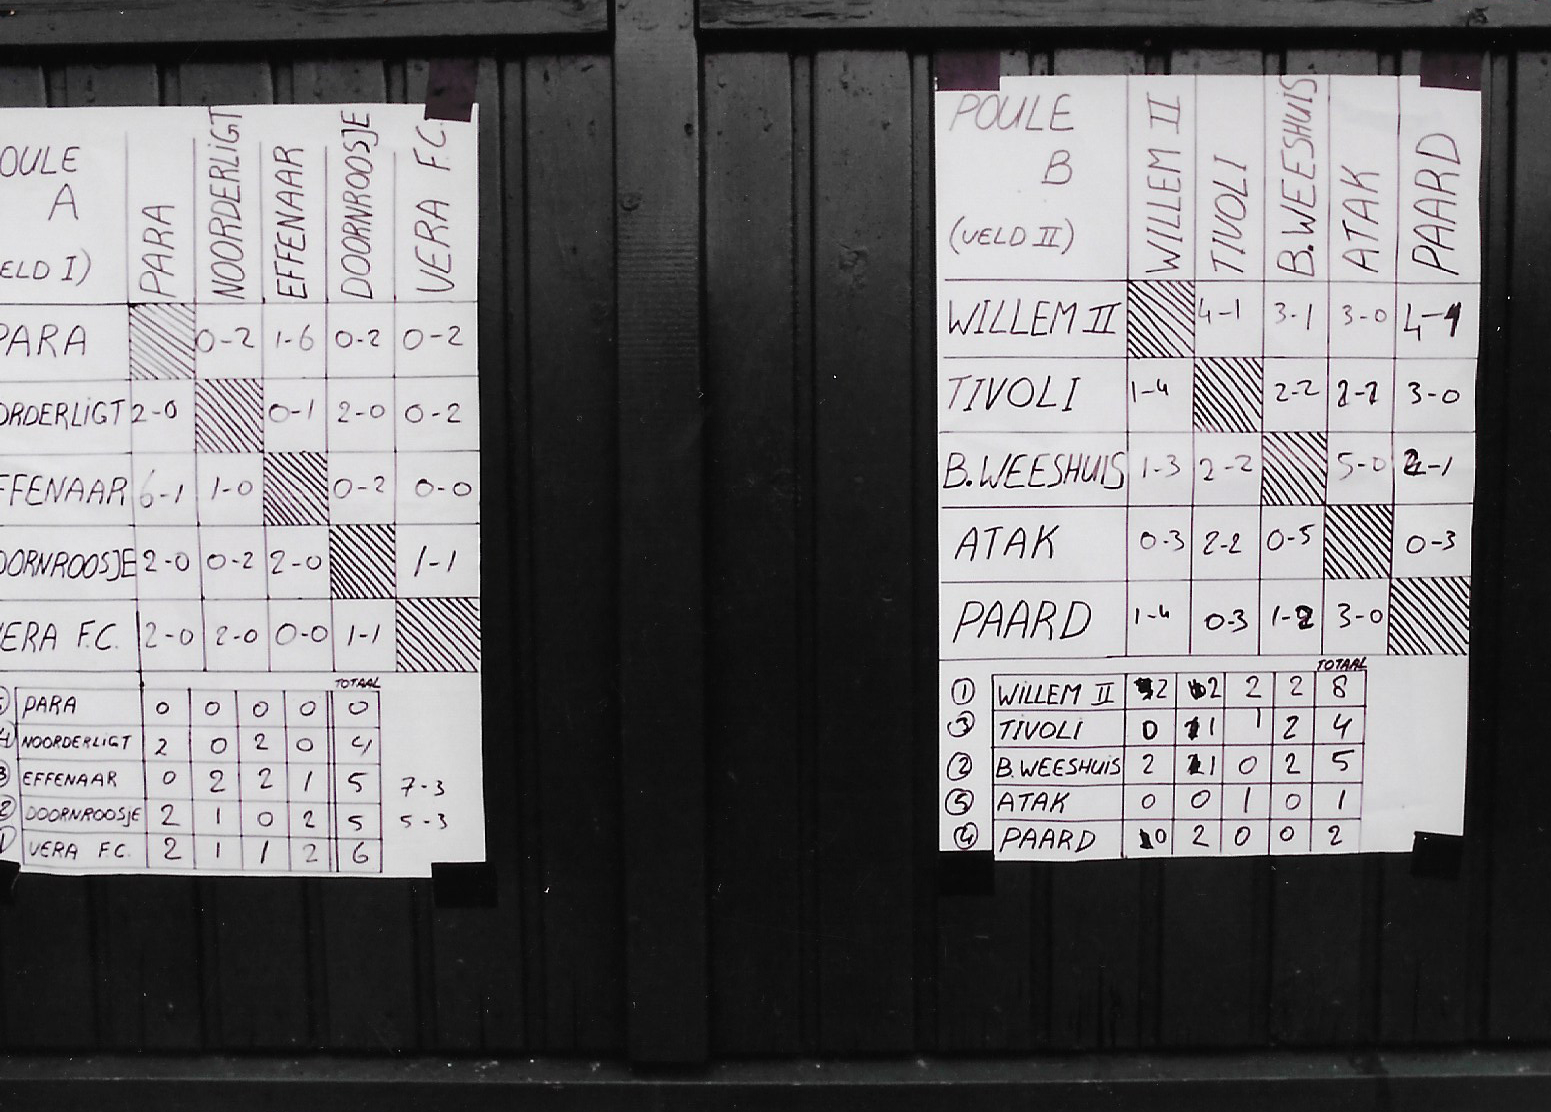 OULE
A
ELD I)
PARA
NOORDERLIGT
EFFENAAR
DOORNROOSJE
VERA F.C.
PARA 0-2 1-6 0-2 0-2
ORDERLIGT 2-0 0-1 2-0 0-2
FFENAAR 6-1 1-0 0-2 0-0
OORNROOSJE 2-0 0-2 2-0 1-1
VERA F.C. 2-0 2-0 0-0 1-1
TOTAAL
PARA 0 0 0 0 0
4 NOORDERLIGT 2 0 2 0 4
3 EFFENAAR 0 2 2 1 5 7-3
2 DOORNROOSJE 2 1 0 2 5 5-3
VERA F.C. 2 1 1 2 6
POULE
B
(VELD II)
WILLEM II
TIVOLI
B.WEESHUIS
ATAK
PAARD
WILLEM II 4-1 3-1 3-0 4-1
TIVOLI 1-4 2-2 2-2 3-0
B.WEESHUIS 1-3 2-2 5-0 2-1
ATAK 0-3 2-2 0-5 0-3
PAARD 1-4 0-3 1-2 3-0
TOTAAL
1 WILLEM II 2 2 2 2 8
3 TIVOLI 0 1 1 2 4
2 B.WEESHUIS 2 1 0 2 5
5 ATAK 0 0 1 0 1
4 PAARD 0 2 0 0 2